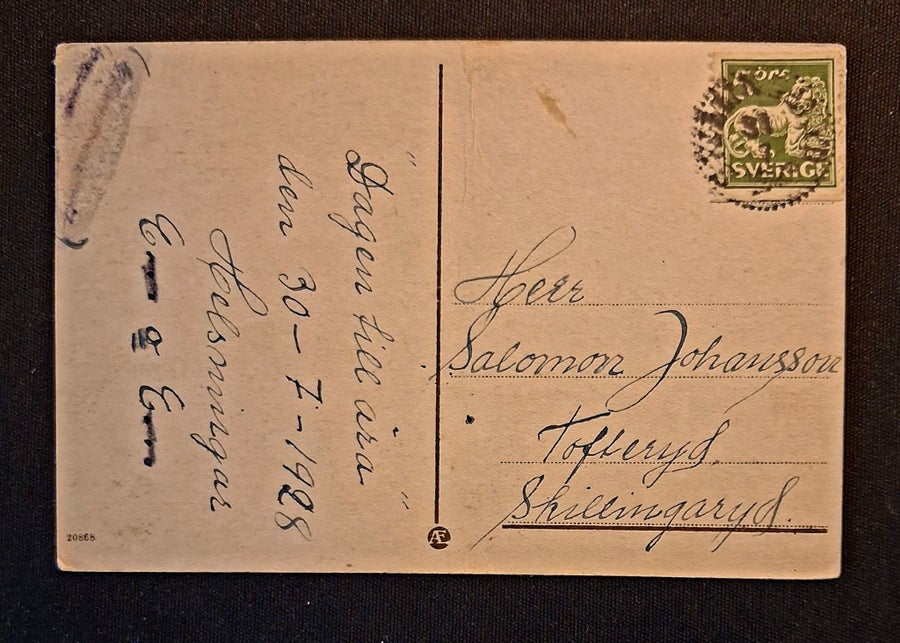 "Dagen till ära"
den 30-7-1928
Helsningar
E — a E—
Herr
Salomon Johansson
Tofteryd.
Skillingaryd.
5 öre
SVERIGE
20868